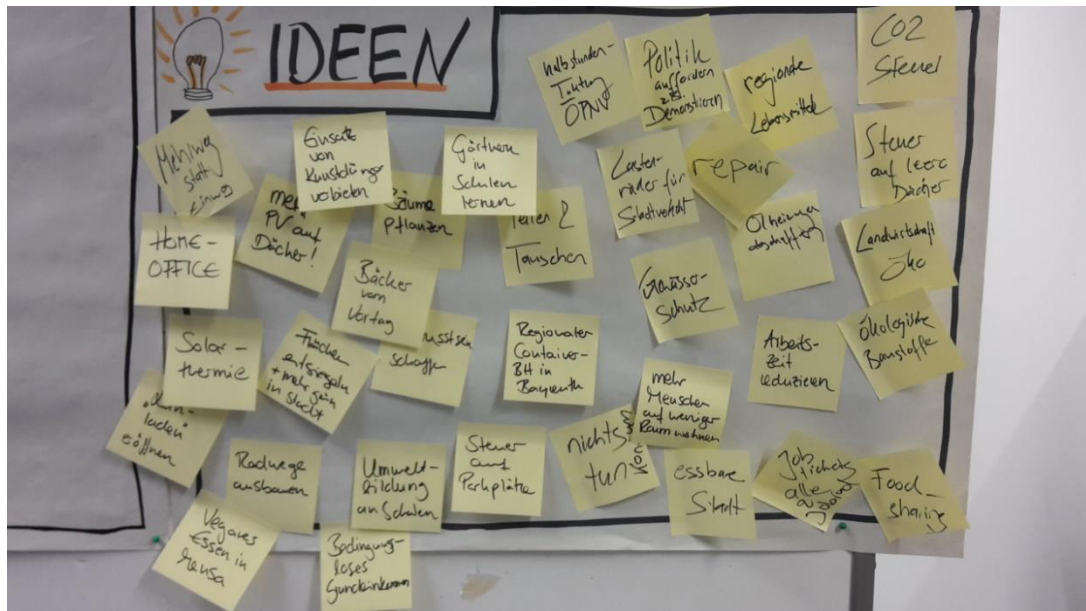 IDEEN
halbstunden-
Taktung
ÖPNV
Politik
auffordern
Demonstrieren
regionale
Lebensmittel
CO2
Steuer
Mehrweg
statt
Einweg
Einsatz
von
Kunstdünger
verbieten
Gärtnern
in
Schulen
lernen
Lasten-
räder für
Stadtverkehr
repair
Steuer
auf leere
Dächer
HOME-
OFFICE
mehr
PV auf
Dächer!
Bäume
pflanzen
Teilen &
Tauschen
Ölheizungen
abschaffen
Landwirtschaft
Öko
Bäcker
vom
Vortag
Gewässer-
schutz
Solar-
thermie
Flächen
entsiegeln
+ mehr grün
in Stadt
usstsein
schaffen
Regionaler
Container-
BH in
Bayreuth
Arbeits-
zeit
reduzieren
Ökologische
Baustoffe
mehr
Menschen
auf weniger
Raum wohnen
laden"
eröffnen
Radwege
ausbauen
Umwelt-
bildung
an Schulen
Steuer
auf
Parkplätze
nichts
tun
essbare
Stadt
Job
tickets
alle
Food
sharing
Veganes
Essen in
Mensa
Bedingungs-
loses
Grundeinkommen